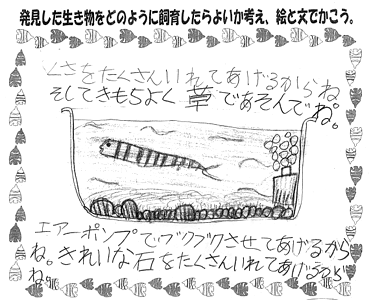 発見した生き物をどのように飼育したらよいか考え、絵と文でかこう。
くさをたくさんいれてあげるからね。
そしてきもちよく草であそんでね。
エアーポンプでブクブクさせてあげるから
ね。きれいな石をたくさんいれてあげるから
ね。